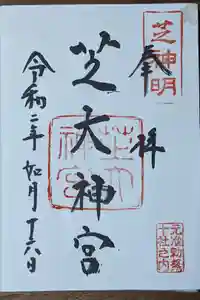 芝神明
奉拝
元准勅祭
十社之内
芝大神宮
芝大
神宮
令和二年 如月十六日